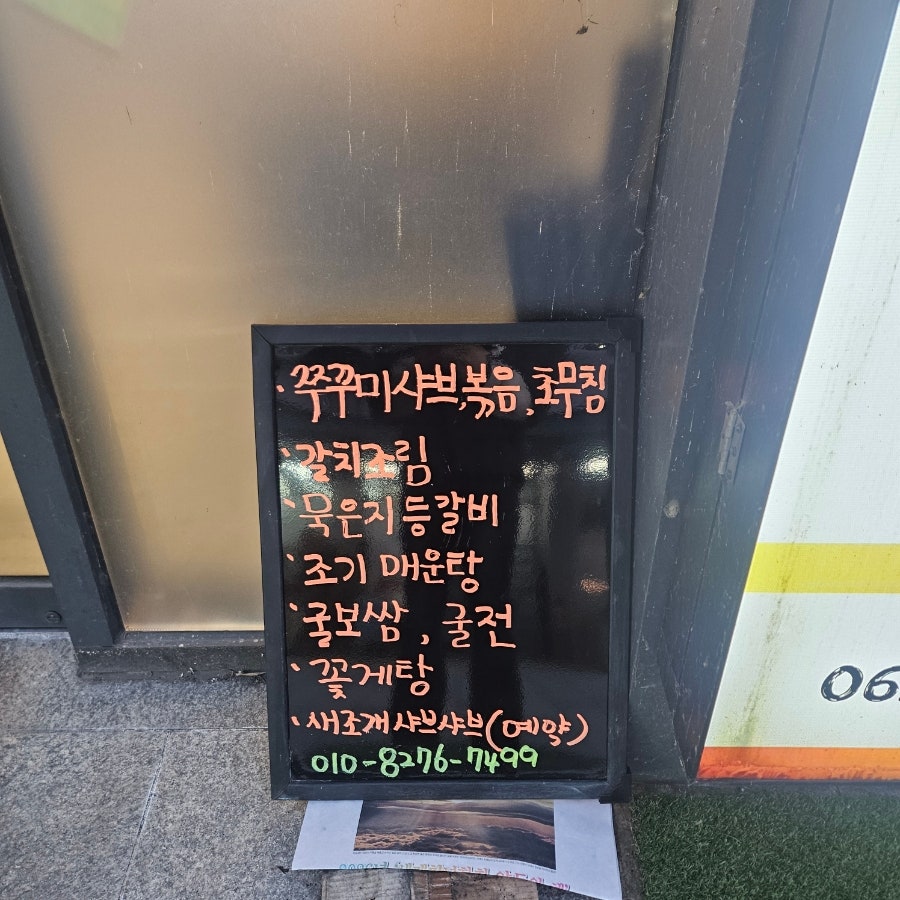 · 쭈꾸미샤브,볶음,초무침
· 갈치조림
· 묵은지등갈비
· 조기 매운탕
· 굴보쌈, 굴전
· 꽃게탕
· 새조개샤브샤브(예약)
010-8276-7499
06